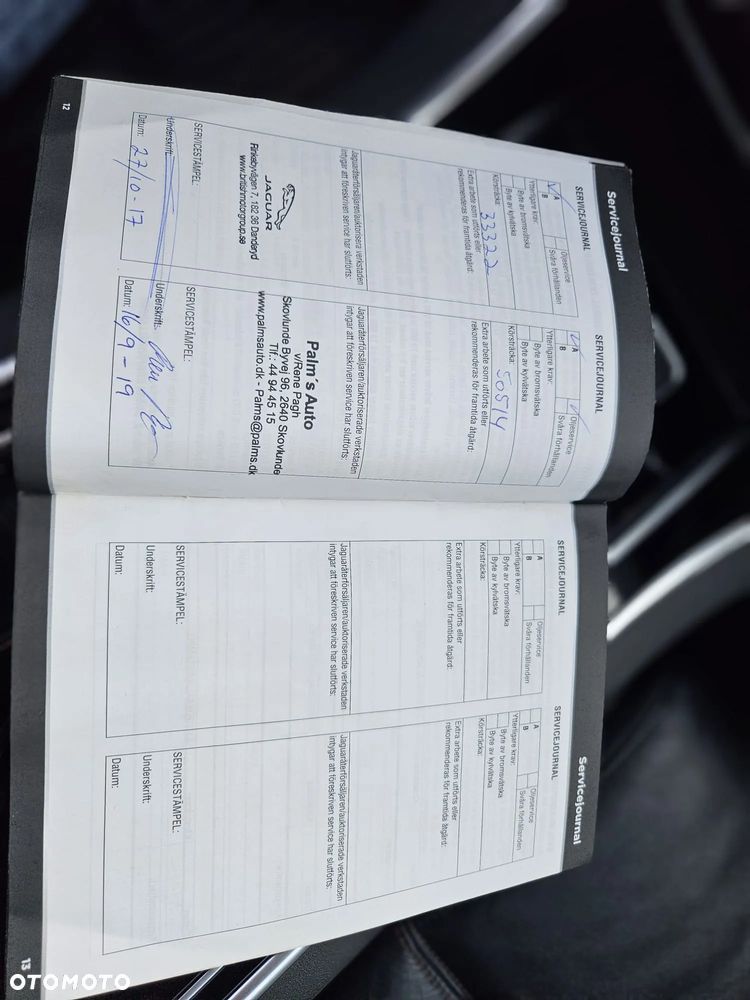 Servicejournal
SERVICEJOURNAL
A
Oljeservice
B
Svåra förhållanden
Ytterligare krav:
Byte av bromsvätska
Byte av kylvätska
Körsträcka:
33322
Extra arbete som utförts eller
rekommenderas för framtida åtgärd:
Jaguaråterförsäljaren/auktorisera verkstaden
intygar att föreskriven service har slutförts:
JAGUAR
Rinkebyvägen 7, 182 36 Danderyd
www.britishmotorgroup.se
SERVICESTÄMPEL:
Underskrift:
Datum: 27/10-17
12
SERVICEJOURNAL
A
Oljeservice
B
Svåra förhållanden
Ytterligare krav:
Byte av bromsvätska
Byte av kylvätska
Körsträcka:
50514
Extra arbete som utförts eller
rekommenderas för framtida åtgärd:
Jaguaråterförsäljaren/auktoriserade verkstaden
intygar att föreskriven service har slutförts:
Palm's Auto
v/Rene Pagh
Skovlunde Byvej 96, 2640 Skovlunde
Tlf.: 44 94 45 15
www.palmsauto.dk - Palms@palms.dk
SERVICESTÄMPEL:
Underskrift:
Datum: 16/9-19
SERVICEJOURNAL
A
Oljeservice
B
Svåra förhållanden
Ytterligare krav:
Byte av bromsvätska
Byte av kylvätska
Körsträcka:
Extra arbete som utförts eller
rekommenderas för framtida åtgärd:
Jaguaråterförsäljaren/auktoriserade verkstaden
intygar att föreskriven service har slutförts:
SERVICESTÄMPEL:
Underskrift:
Datum:
Servicejournal
SERVICEJOURNAL
A
Oljeservice
B
Svåra förhållanden
Ytterligare krav:
Byte av bromsvätska
Byte av kylvätska
Körsträcka:
Extra arbete som utförts eller
rekommenderas för framtida åtgärd:
Jaguaråterförsäljaren/auktoriserade verkstaden
intygar att föreskriven service har slutförts:
SERVICESTÄMPEL:
Underskrift:
Datum:
13
OTOMOTO